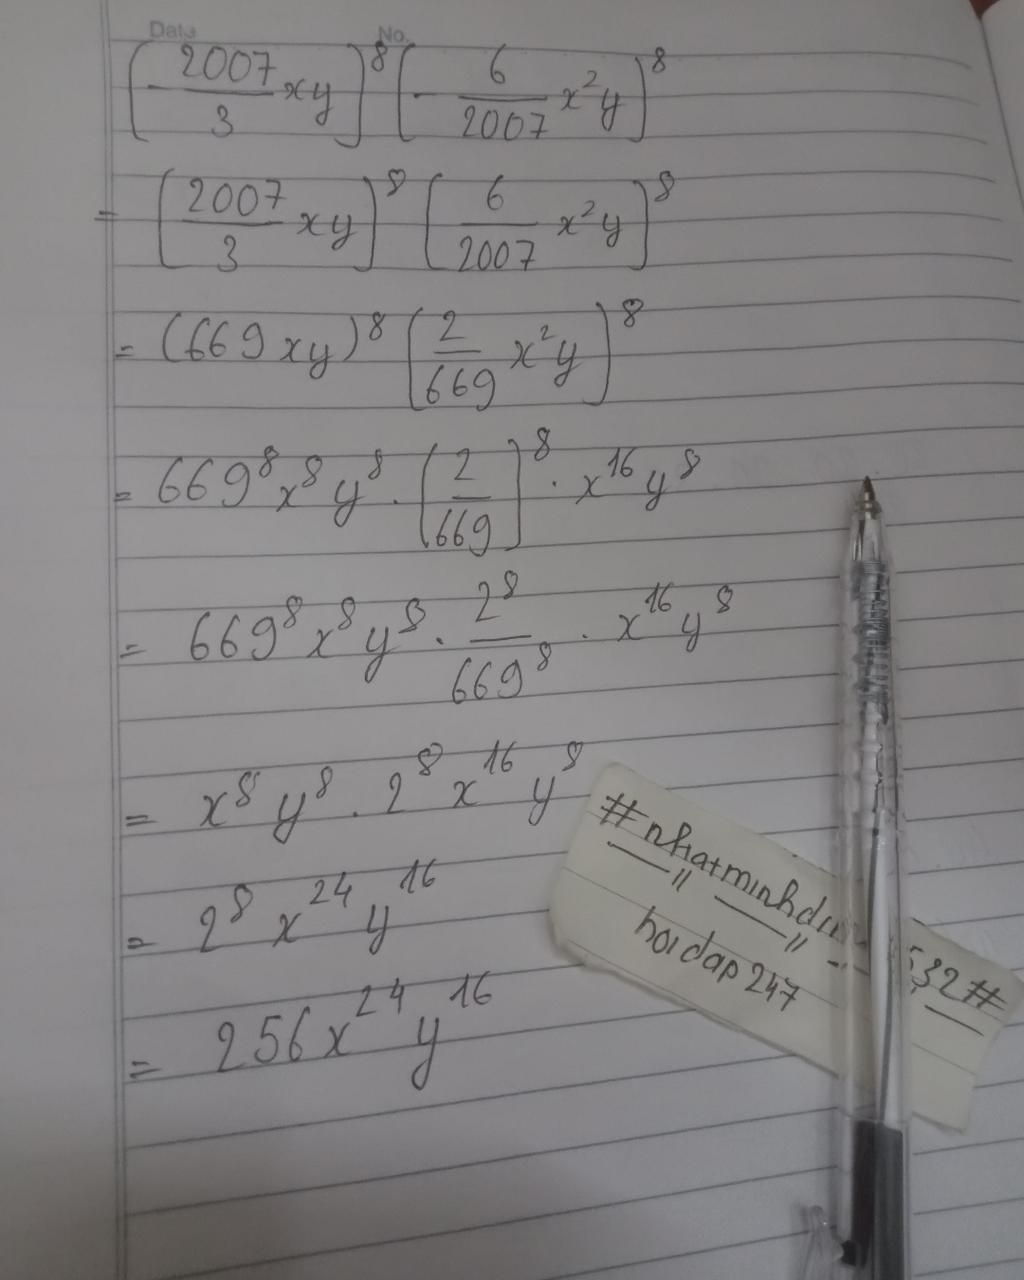 Date No.
(-2007/3 xy)^8 (-6/2007 x²y)^8
= (2007/3 xy)^8 (6/2007 x²y)^8
= (669xy)^8 (2/669 x²y)^8
= 669^8 x^8 y^8 . (2/669)^8 . x^16 y^8
= 669^8 x^8 y^8 . 2^8/669^8 . x^16 y^8
= x^8 y^8 . 2^8 x^16 y^8
= 2^8 x^24 y^16
= 256x^24 y^16
hoidap247